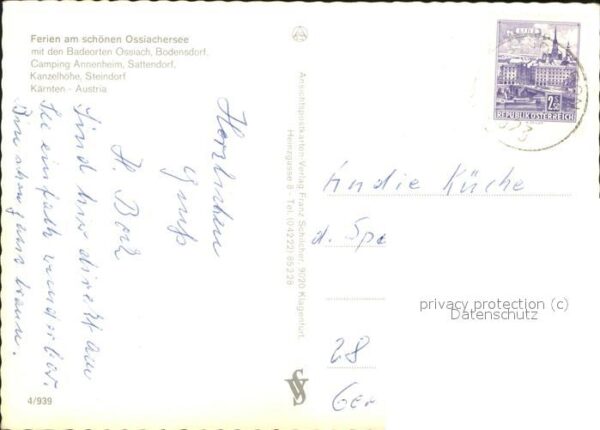 Ferien am schönen Ossiachersee
mit den Badeorten Ossiach, Bodensdorf,
Camping Annenheim, Sattendorf,
Kanzelhöhe, Steindorf
Kärnten - Austria
Herzlichen
Gruß
H.
Sind hier direkt am
See einfach wunderbar.
Bin schon ganz braun.
4/939
Ansichtspostkarten-Verlag Franz Schilcher, 9020 Klagenfurt,
Heinzgasse 8 - Tel. (04222) 85228
LINZ
2.50
REPUBLIK ÖSTERREICH
An die Küche
d. Spe
28
Ger
privacy protection (c)
Datenschutz